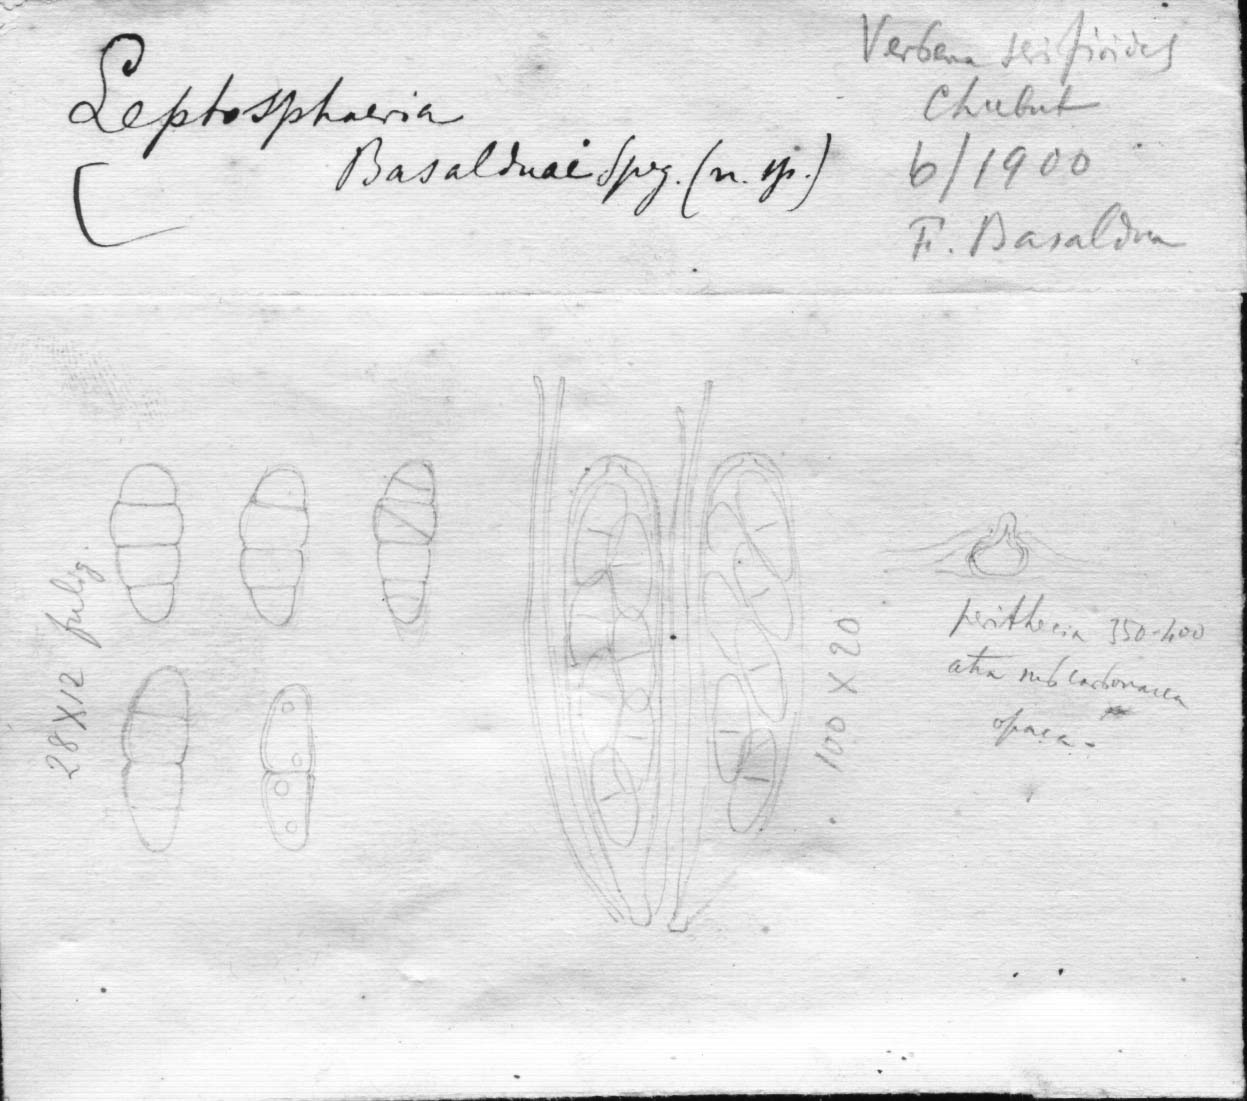 Leptosphaeria
Basalduai Speg. (n. sp.)
Verbena serifioides
Chubut
6/1900
F. Basaldua
28X12 fulig.
100 X 20
perithecia 350-400
atra subcarbonacea
opaca-